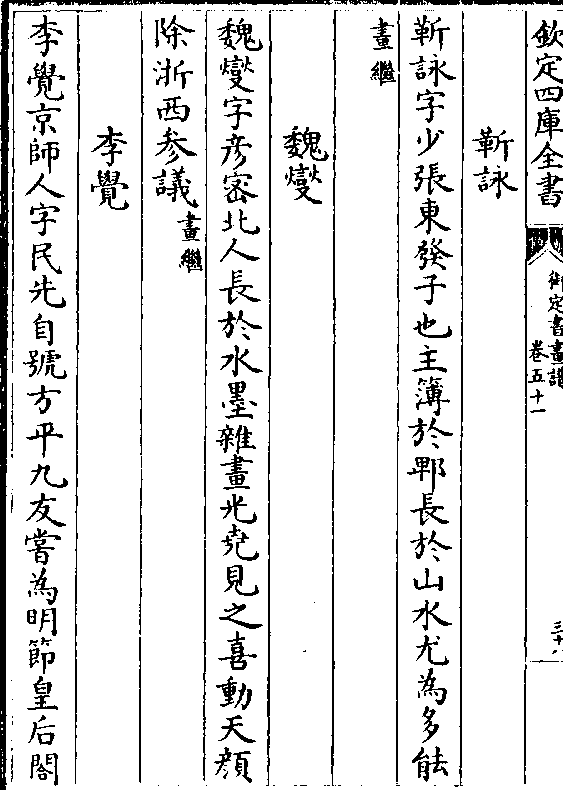 欽定四庫全書
御定書畫譜
卷五十一
三十八
靳詠
靳詠字少張東發子也主簿於鄲長於山水尤為多能
畫繼
魏燮
魏燮字彦密北人長於水墨雜畫光堯見之喜動天顔
除浙西參議畫繼
李覺
李覺京師人字民先自號方平九友嘗為明節皇后閣